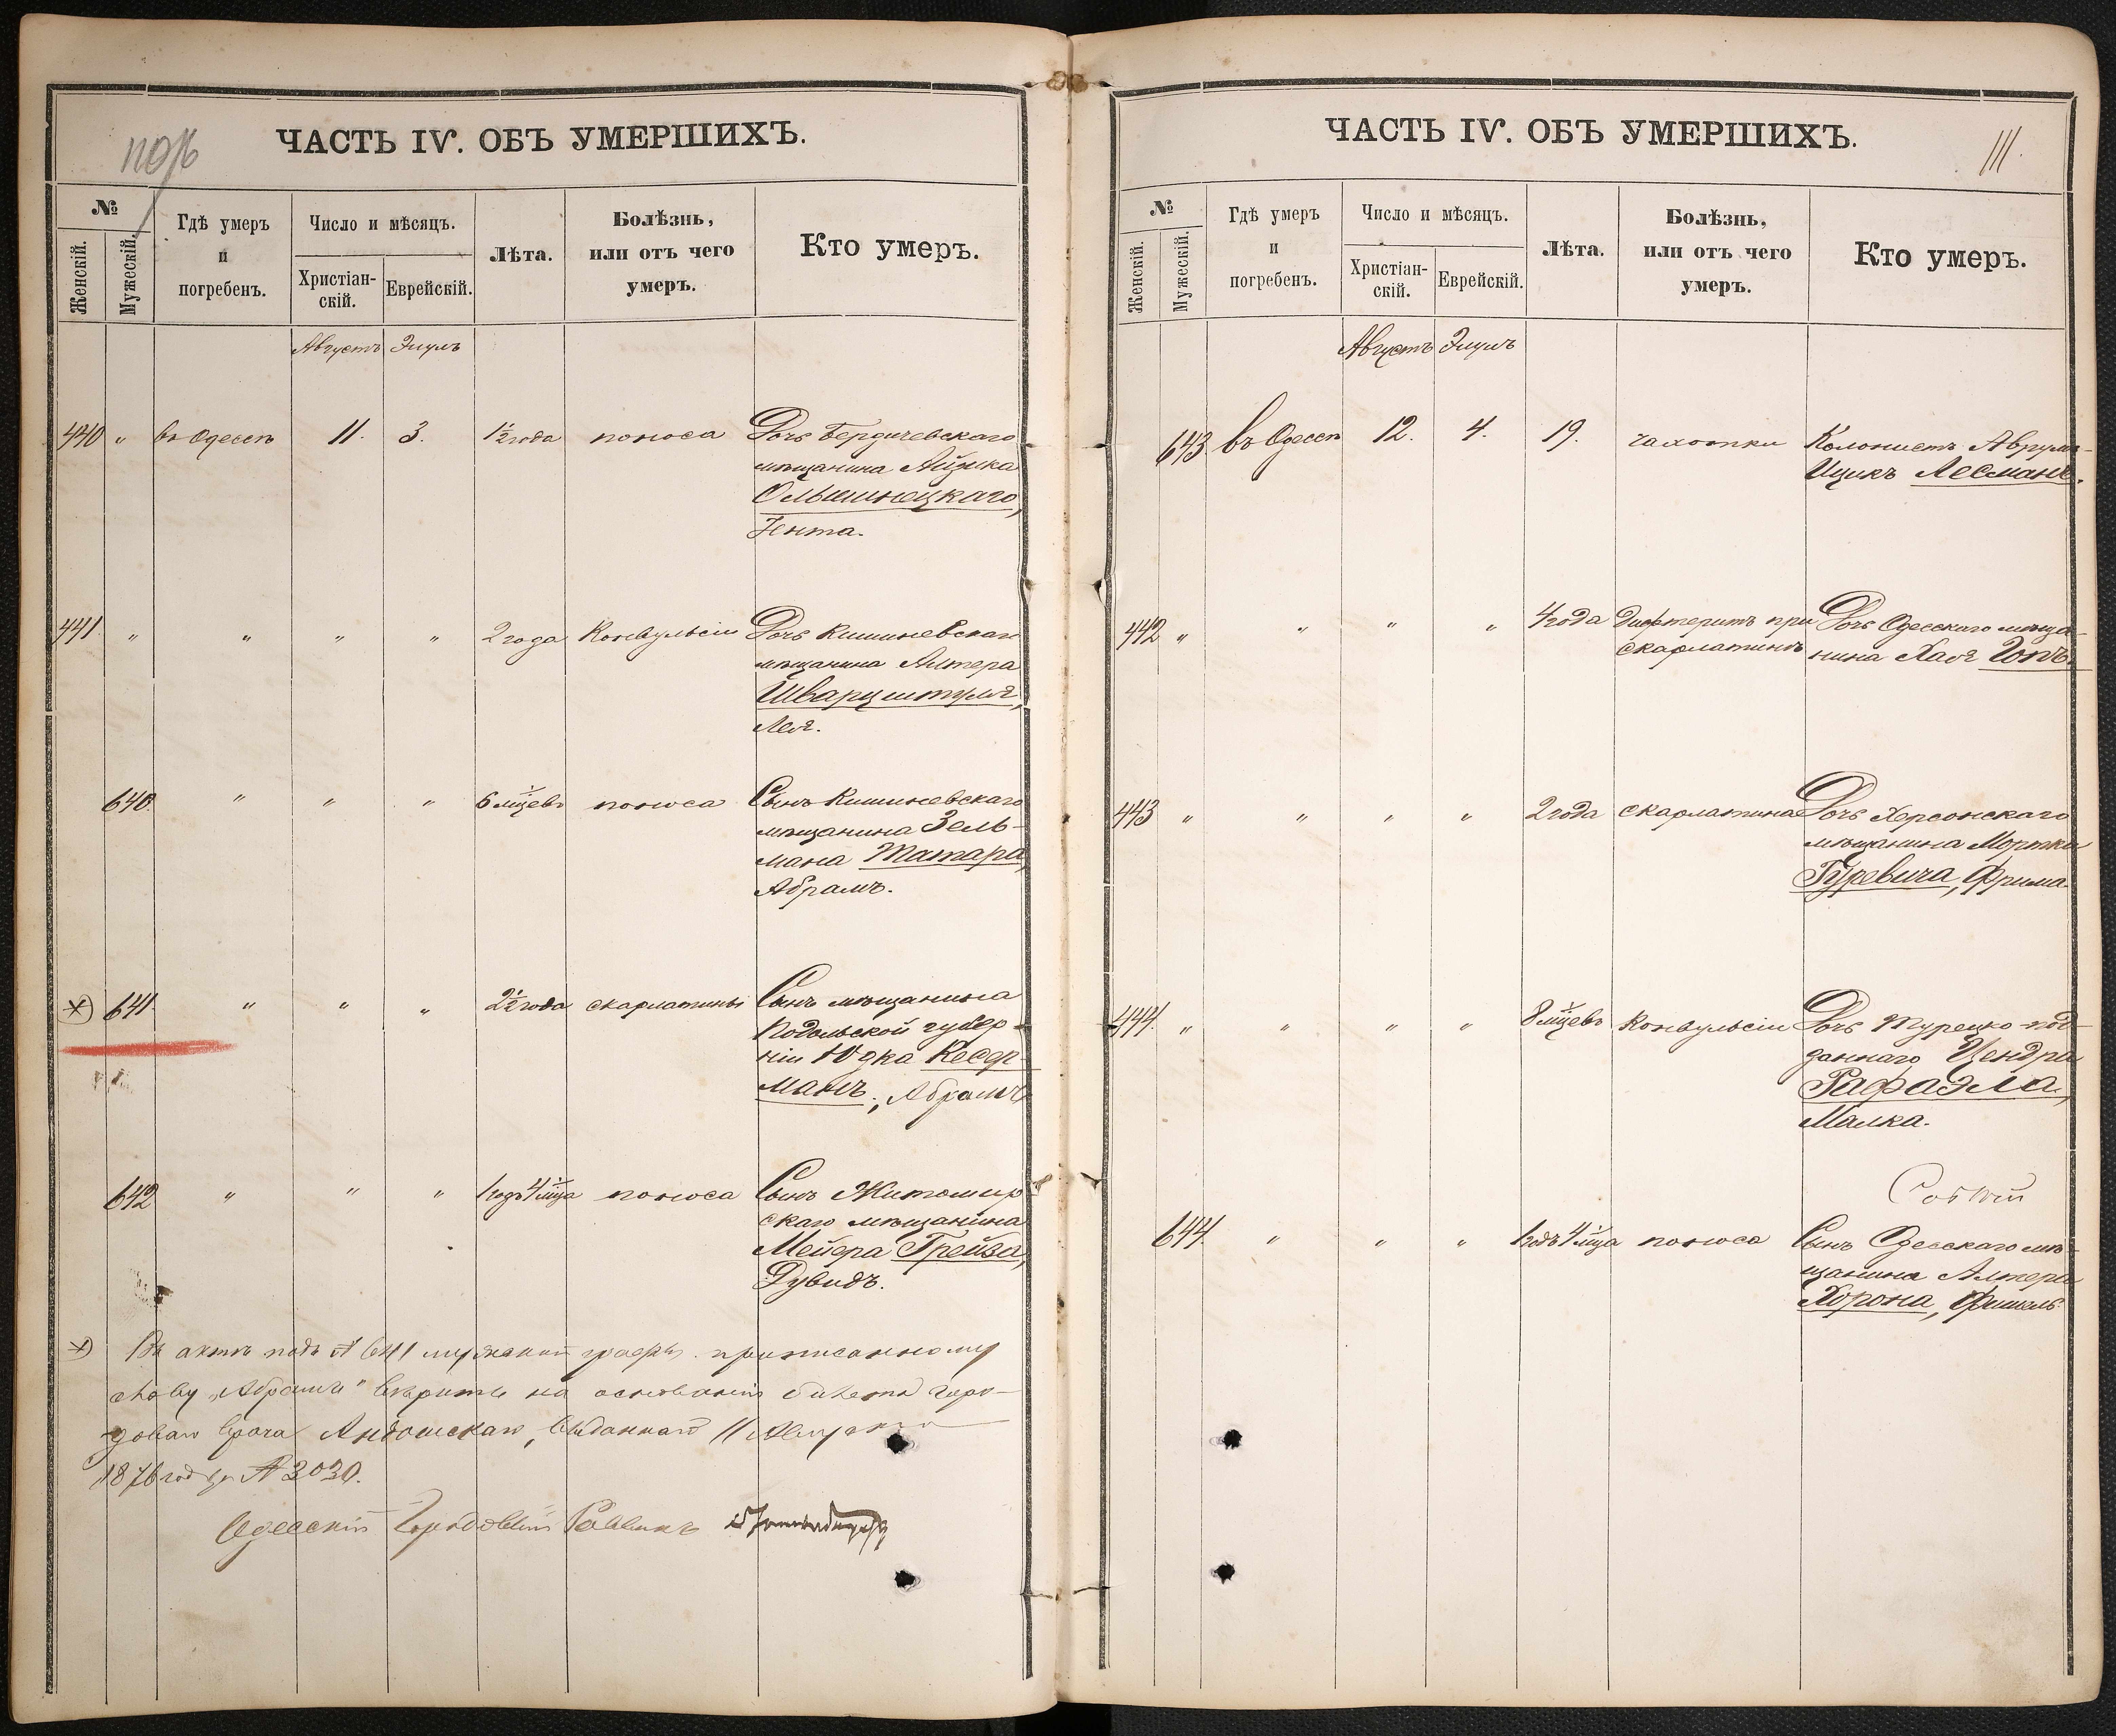 110 об
ЧАСТЬ IV. ОБЪ УМЕРШИХЪ.
№
Женскій.
Мужескій.
Гдѣ умеръ
и
погребенъ.
Число и мѣсяцъ.
Христіан-
скій.
Еврейскій.
Лѣта.
Болѣзнь,
или отъ чего
умеръ.
Кто умеръ.
Августъ Элулъ
440 " въ Одессѣ 11. 3. 1½ года поноса Дочь Бердичевскаго
мѣщанина Айзика
Ольшинецкаго,
Гента.
441 " " " " 2 года Конвульсіи Дочь Кишиневскаго
мѣщанина Алтера
Шварцштулъ,
Лея.
640. " " " 6 мѣцевъ поноса Сынъ Кишиневскаго
мѣщанина Зель-
мана Татара,
Абрамъ.
*) 641. " " " 2½ года скарлатины Сынъ мѣщанина
Подольской губер-
ніи Юдка
манъ., Абрамъ
642 " " " 1 годъ 4 мца поноса Сынъ Житомир
скаго мѣщанина
Мейера Грейза,
Дувидъ.
*) Въ актѣ подъ № 641 мужеской графы приписанному
слову „Абрамъ" вѣрить на основаніи билета горо-
доваго врача выданнаго 11 Августа
1876 года за № 3030.
Одесскій Городовый Раввинъ
ЧАСТЬ IV. ОБЪ УМЕРШИХЪ.
111.
№
Женскій.
Мужескій.
Гдѣ умеръ
и
погребенъ.
Число и мѣсяцъ.
Христіан-
скій.
Еврейскій.
Лѣта.
Болѣзнь,
или отъ чего
умеръ.
Кто умеръ.
Августъ Элулъ
643 въ Одессѣ 12. 4. 19. чахотки Колонистъ Аврумъ-
Ицикъ Лесманъ.
442 " " " " 4 года Дифтеритъ при Дочь Одесскаго мѣща-
скарлатинѣ нина Хая
443 " " " " 2 года скарлатина Дочь Херсонскаго
мѣщанина Мортка
Гуревича, Фрима
444. " " " " 8 мѣцевъ Конвульсіи Дочь Турецко-под-
даннаго Цендра
Рафаэла,
Малка.
644. " " " 1 годъ 4 мца поноса Сынъ Одесскаго мѣ-
щанина Алтера
Хорона, Фишель